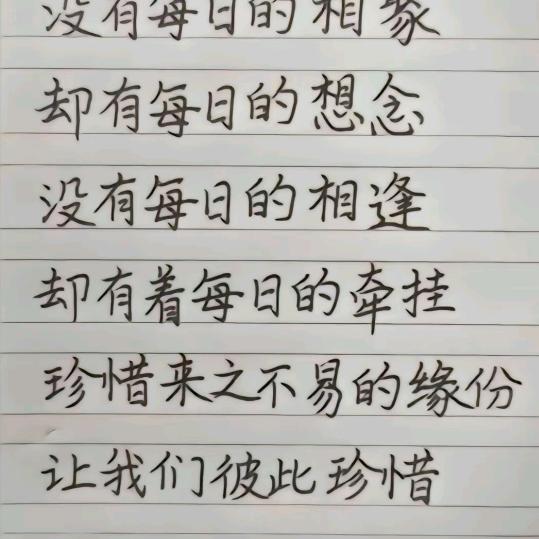 没有每日的相聚
却有每日的想念
没有每日的相逢
却有着每日的牵挂
珍惜来之不易的缘份
让我们彼此珍惜